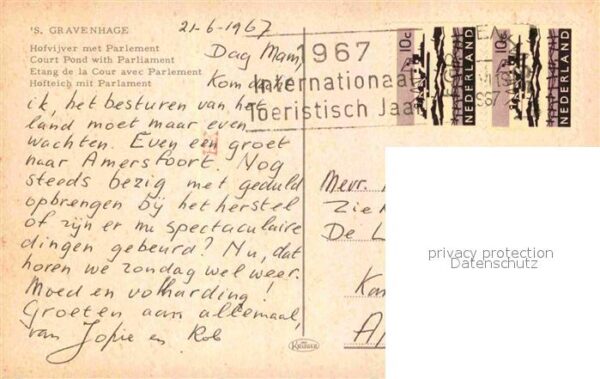 'S. GRAVENHAGE
Hofvijver met Parlement
Court Pond with Parliament
Etang de la Cour avec Parlement
Hofteich mit Parlament
21-6-1967
Dag Mam,
Kom
ik, het besturen van het
land moet maar even
wachten. Even een groet
naar Amersfoort. Nog
steeds bezig met geduld
opbrengen bij het herstel
of zijn er nu spectaculaire
dingen gebeurd? Nu, dat
horen we zondag wel weer.
Moed en volharding!
Groeten aan allemaal,
van Jopie en Rob
1967
Internationaal
Toeristisch Jaar
10c
NEDERLAND
10c
NEDERLAND
Mevr.
Zie
De L
Ka
A
privacy protection
Datenschutz
KRÜGER